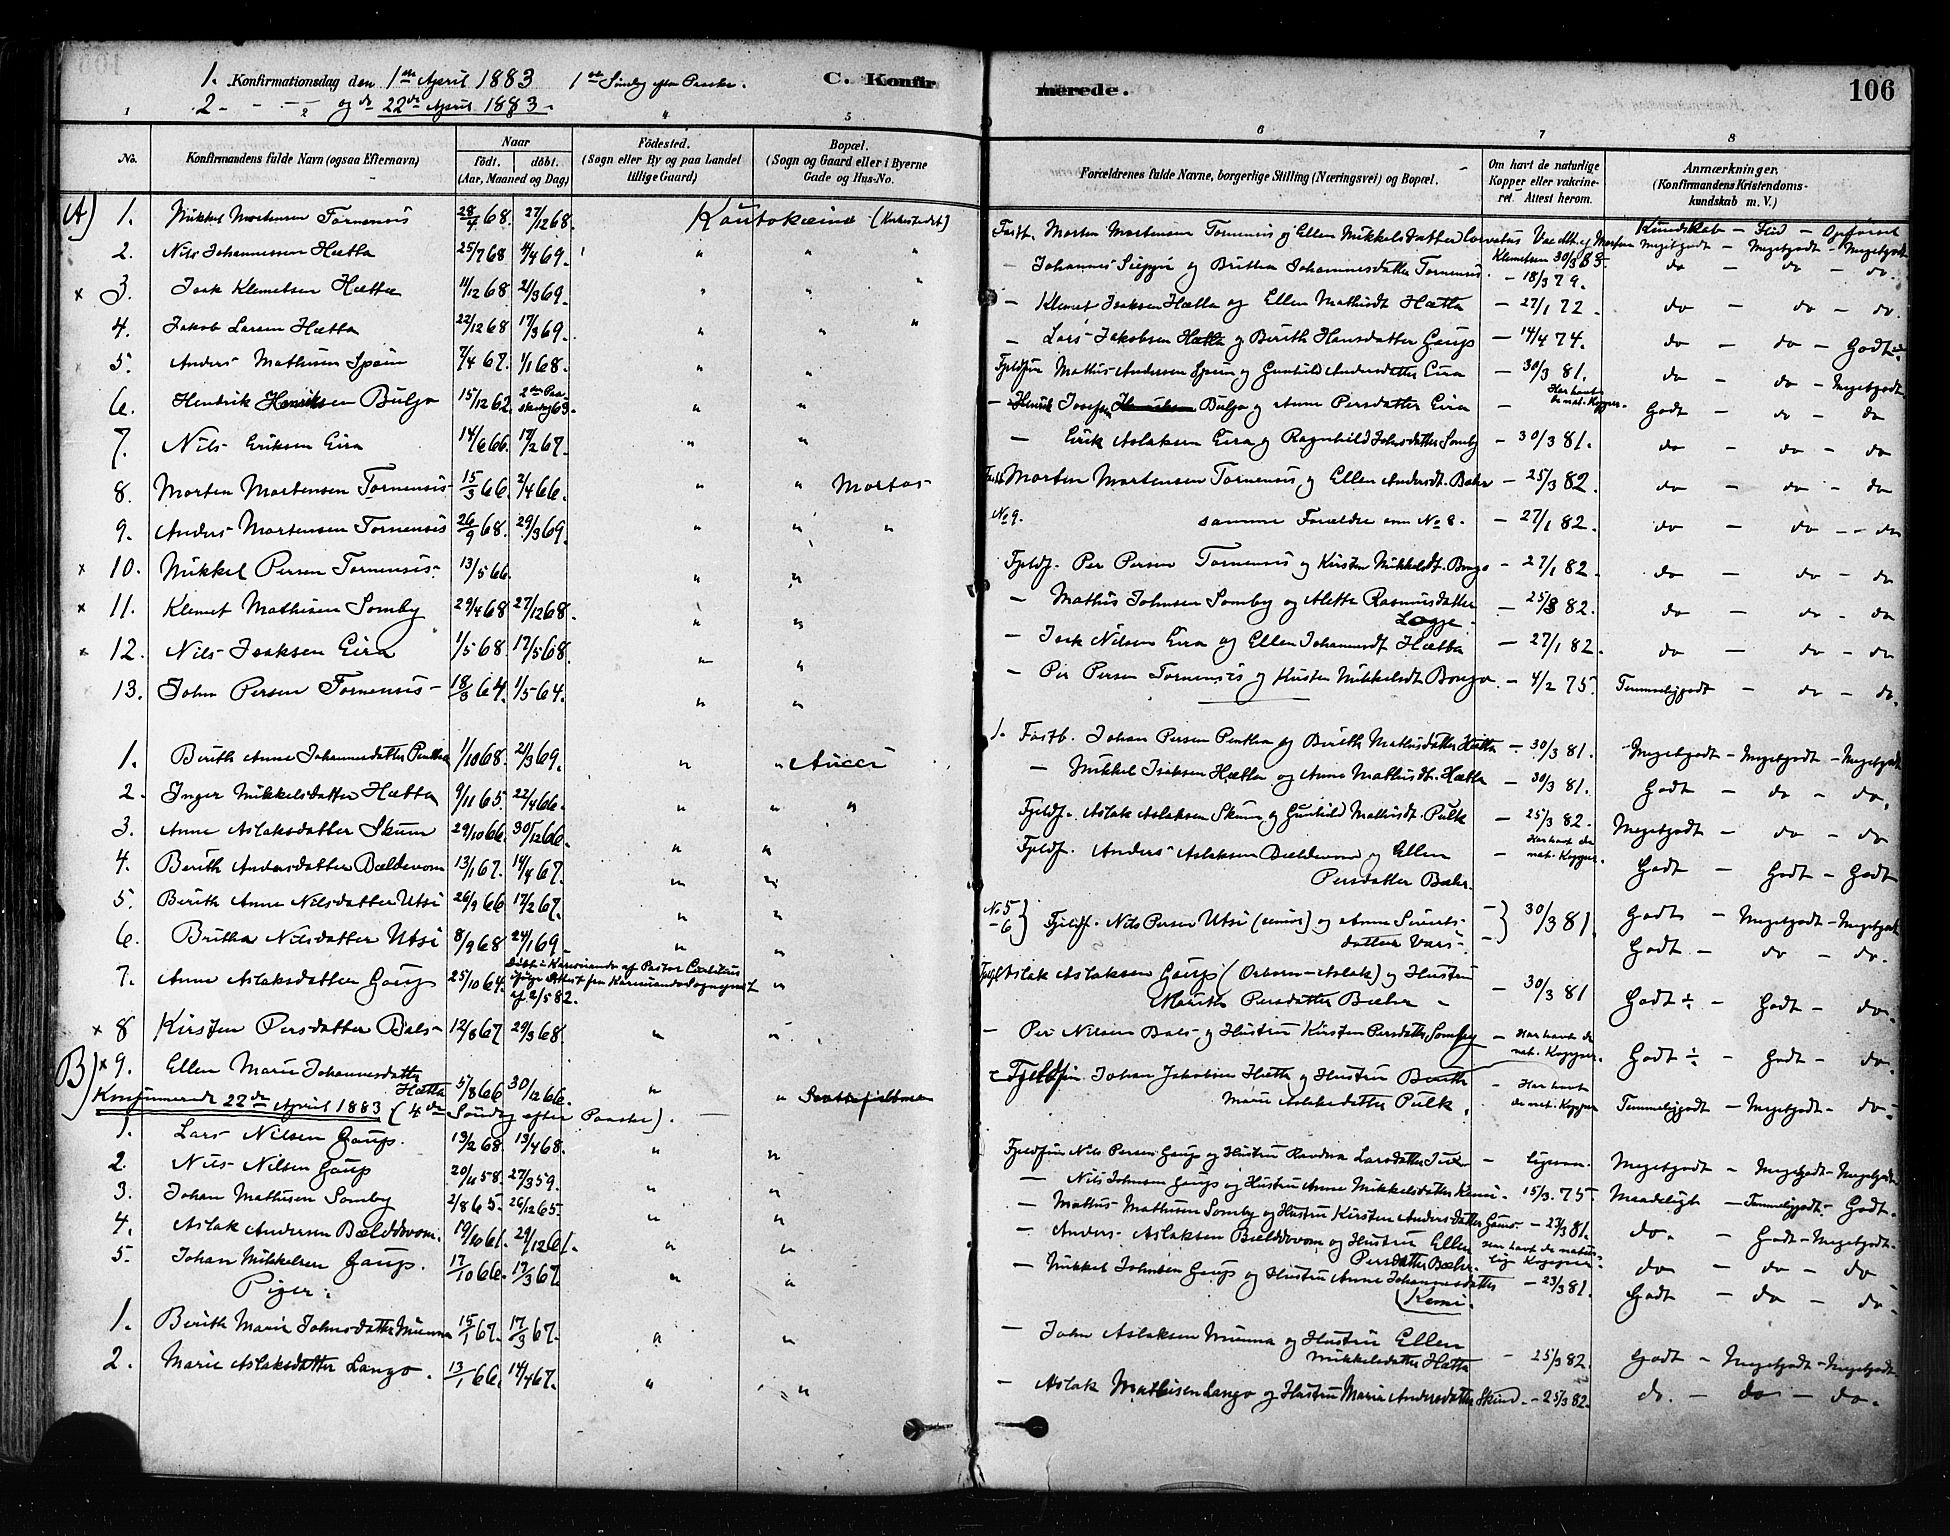 1. Konfirmationsdag den 1ste April 1883 1ste Søndag efter Paaske. C. Konfirmerede. 106
2- og den 22de April 1883.
1 2 4 5 6 7 8
No. Konfirmandens fulde Navn (ogsaa Efternavn) Naar født. døbt. (Aar, Maaned og Dag) Födested. (Sogn eller By og paa Landet tillige Gaard) Bopæl. (Sogn og Gaard eller i Byerne Gade og Hus-No. Forældrenes fulde Navne, borgerlige Stilling (Næringsvei) og Bopæl. Om havt de naturlige Kopper eller vakcineret. Attest herom. Anmærkninger. (Konfirmandens Kristendomskundskab m. V.)
Kundskab - Flid - Opførsel
A) 1. Mikkel Mortensen Tornensis 28/4 68. 27/12 68. Kautokeino (Kirkestedet) Fastb. Morten Mortensen Tornensis og Ellen Mikkelsdatter Vac. Att. af Morten Klemetsen 30/3 83. Megetgodt - Megetgodt - Megetgodt
2. Nils Johannessen Hætta 25/7 68 4/4 69. " " " - Johannes og Britha Johannesdatter Tornensis - 18/3 79. do - do - do.
x 3. Isak Klemetsen Hætta 11/12 68 21/3 69. " " " - Klemet Isaksen Hætta og Ellen Mathisdt Hætta - 27/1 72 do - do - do.
4. Jakob Larsen Hætta 22/12 68 17/3 69. " " " - Lars Jakobsen Hætta og Berith Hansdatter Gaup - 14/4 74. do - do - Godt
5. Anders Mathisen Spein 7/4 67. 1/1 68. " " Fjeldfin Mathis Andersen Spein og Gunhild Andersdatter Eira - 30/3 81. do - do - Megetgodt
6. Hendrik Henriksen Buljo 15/12 62. 2den Paaskedag 63. " " - Josef Buljo og Anne Persdatter Eira - Har havt de nat. Kopper. Godt - do - do
7. Nils Eriksen Eira 14/6 66. 17/2 67. " " - Erik Aslaksen Eira og Ragnhild Johnsdatter Somby - 30/3 81. do - do - do
8. Morten Mortensen Tornensis 15/3 66. 2/4 66. " " Mortas Fastb. Morten Mortensen Tornensis og Ellen Andersdt. Bæhr - 25/3 82. do - do - do
9. Anders Mortensen Tornensis 26/9 68. 29/3 69. " " " No 9. samme Forældre som No 8. - 27/1 82. do - do - do
x 10. Mikkel Persen Tornensis. 13/5 66. " " Fjeldf. Per Persen Tornensis og Kirsten Mikkelsdt. Bongo - 27/1 82. do - do - do
x 11. Klemet Mathisen Somby 29/4 68 27/12 68. " " - Mathis Johnsen Somby og Alette Rasmusdatter Logje. - 25/3 82. do - do - do.
x 12. Nils Isaksen Eira 1/5 68. 17/5 68. " " - Isak Nilsen Eira og Ellen Johannesdt Hætta - 27/1 82. do - do - do
13. John Persen Tornensis - 18/3 64. 1/5 64. " " - Per Persen Tornensis og Kirsten Mikkelsdt Bongo. - 4/2 75. Temmeliggodt - do - do.
1. Berith Anne Johannesdatter Penthea 1/10 68. 21/3 69. " " Aucci 1. Fastb. Johan Persen Penthea og Berith Mathisdatter Hætta - 30/3 81. Megetgodt - Megetgodt - Megetgodt
2. Inger Mikkelsdatter Hætta 9/11 65. 22/4 66. " " " - Mikkel Isaksen Hætta og Anne Mathisdt. Hætta - 30/3 81. Godt - do - do.
3. Anne Aslaksdatter Skum 29/10 66. 30/12 66. " " Fjeldf. Aslak Aslaksen Skum og Gunhild Mathisdt. Pulk - 25/3 82. Megetgodt - do - do
4. Berith Andersdatter Bældevom 13/1 67. 14/4 67. " " Fjeldf. Anders Aslaksen Bældevom og Ellen Persdatter Bæhr. - Har havt de nat. Kopper. Godt - Godt - Godt
5. Berith Anne Nilsdatter Utsi 26/9 66 17/2 67. " " No 5 - 6 } Fjeldf. Nils Persen Utsi (senior) og Anne Siverts- datter Vars - } 30/3 81. Godt - Megetgodt - Megetgodt
6. Britha Nilsdatter Utsi 8/9 68 24/1 69. " " Godt - do - do.
7. Anne Aslaksdatter Gaup 25/10 64. Døbt i Karesuando af Pastor ifølge Attest fra Karesuando Sogn af 2/5 82. " Aslak Aslaksen Gaup (Orborn-Aslak) og Hustru Marith Persdatter Bæhr - - 30/3 81 Godt ÷ - Godt - do.
x 8 Kirsten Persdatter Bals - 12/8 67 29/3 68. " " - Per Nilsen Bals og Hustru Kirsten Persdatter Somby - Har havt de nat. Kopper. Godt ÷ - Godt - do.
x 9. Ellen Marie Johannesdatter Hætta 5/8 66 30/12 66. " " Fjeldfin Johan Jakobsen Hætta og Hustru Berith Marie Aslaksdatter Pulk. - Har havt de nat. Kopper Temmeliggodt - Megetgodt - do.
B) Konfirmerede 22de April 1883 (4de Søndag efter Paaske). -
1. Lars Nilsen Gaup. 13/2 68. 13/4 68. " " Fjeldfin Nils Persen Gaup og Hustru Ravdna Larsdatter - Ligesaa. Megetgodt - Megetgodt - Megetgodt.
2. Nils Nilsen Gaup 20/11 58. 27/3 59. " " - Nils Johnsen Gaup og Hustru Anne Mikkelsdatter Kemi. - 15/3. 75. Maadeligt - Temmeliggodt. - Godt.
3. Johan Mathisen Somby 2/8 65. 26/12 65 " " - Mathis Mathisen Somby og Hustru Kirsten Andersdatter - 23/3 81. do. - Godt - Megetgodt.
4. Aslak Andersen Bælddovom. 19/10 61. 29/12 61. " " - Anders Aslaksen Bælddovom og Hustru Ellen Persdatter Bæhr. Har havt de naturlige Kopper. do - do - do -
5. Johan Mikkelsen Gaup. 17/10 66. 17/3 67. " " - Mikkel Johnsen Gaup og Hustru Anne Johannesdatter (Kemi. - 23/3 81. Godt - do - do -
Piger:
1. Berith Marie Johnsdatter Munna 15/1 67. 17/3 67. " " - John Aslaksen Munna og Hustru Ellen Mikkelsdatter Hætta - 25/3 82. Godt - Megetgodt - Megetgodt
2. Marie Aslaksdatter Lango. 13/1 66. 14/4 67. " " - Aslak Mathisen Lango og Hustru Marie Andersdatter Skind. - 25/3 82. do. - do - do.